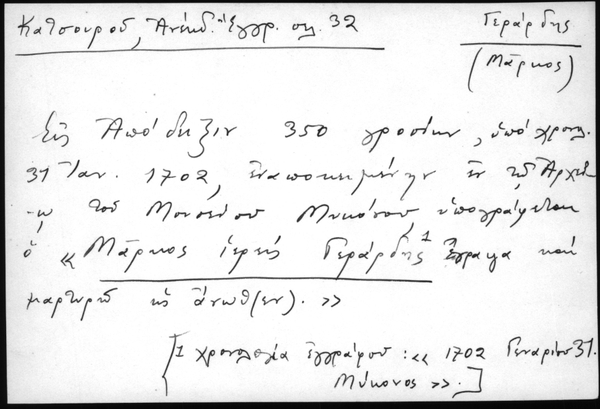 Κατσουροῦ, Ἀνέκδ. Ἔγγρ. σλ. 32
Γεράρδης
(Μάρκος)
Εἰς Ἀπόδειξιν 350 γροσίων, ὑπὸ χρονολ.
31 Ἰαν. 1702, ἐναποκειμένην ἐν τῷ Ἀρχεί-
-ῳ τοῦ Μουσείου Μυκόνου, ὑπογράφεται
ὁ «Μάρκος ἱερεὺς Γεράρδης 1 ἔγραψα καὶ
μαρτυρῶ ὡς ἄνωθ(εν).»
[1 χρονολογία ἐγγράφου: «1702 Γεναρίου 31.
Μύκονος».]